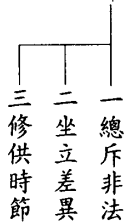 一總斥非法
二坐立差異
三修供時節